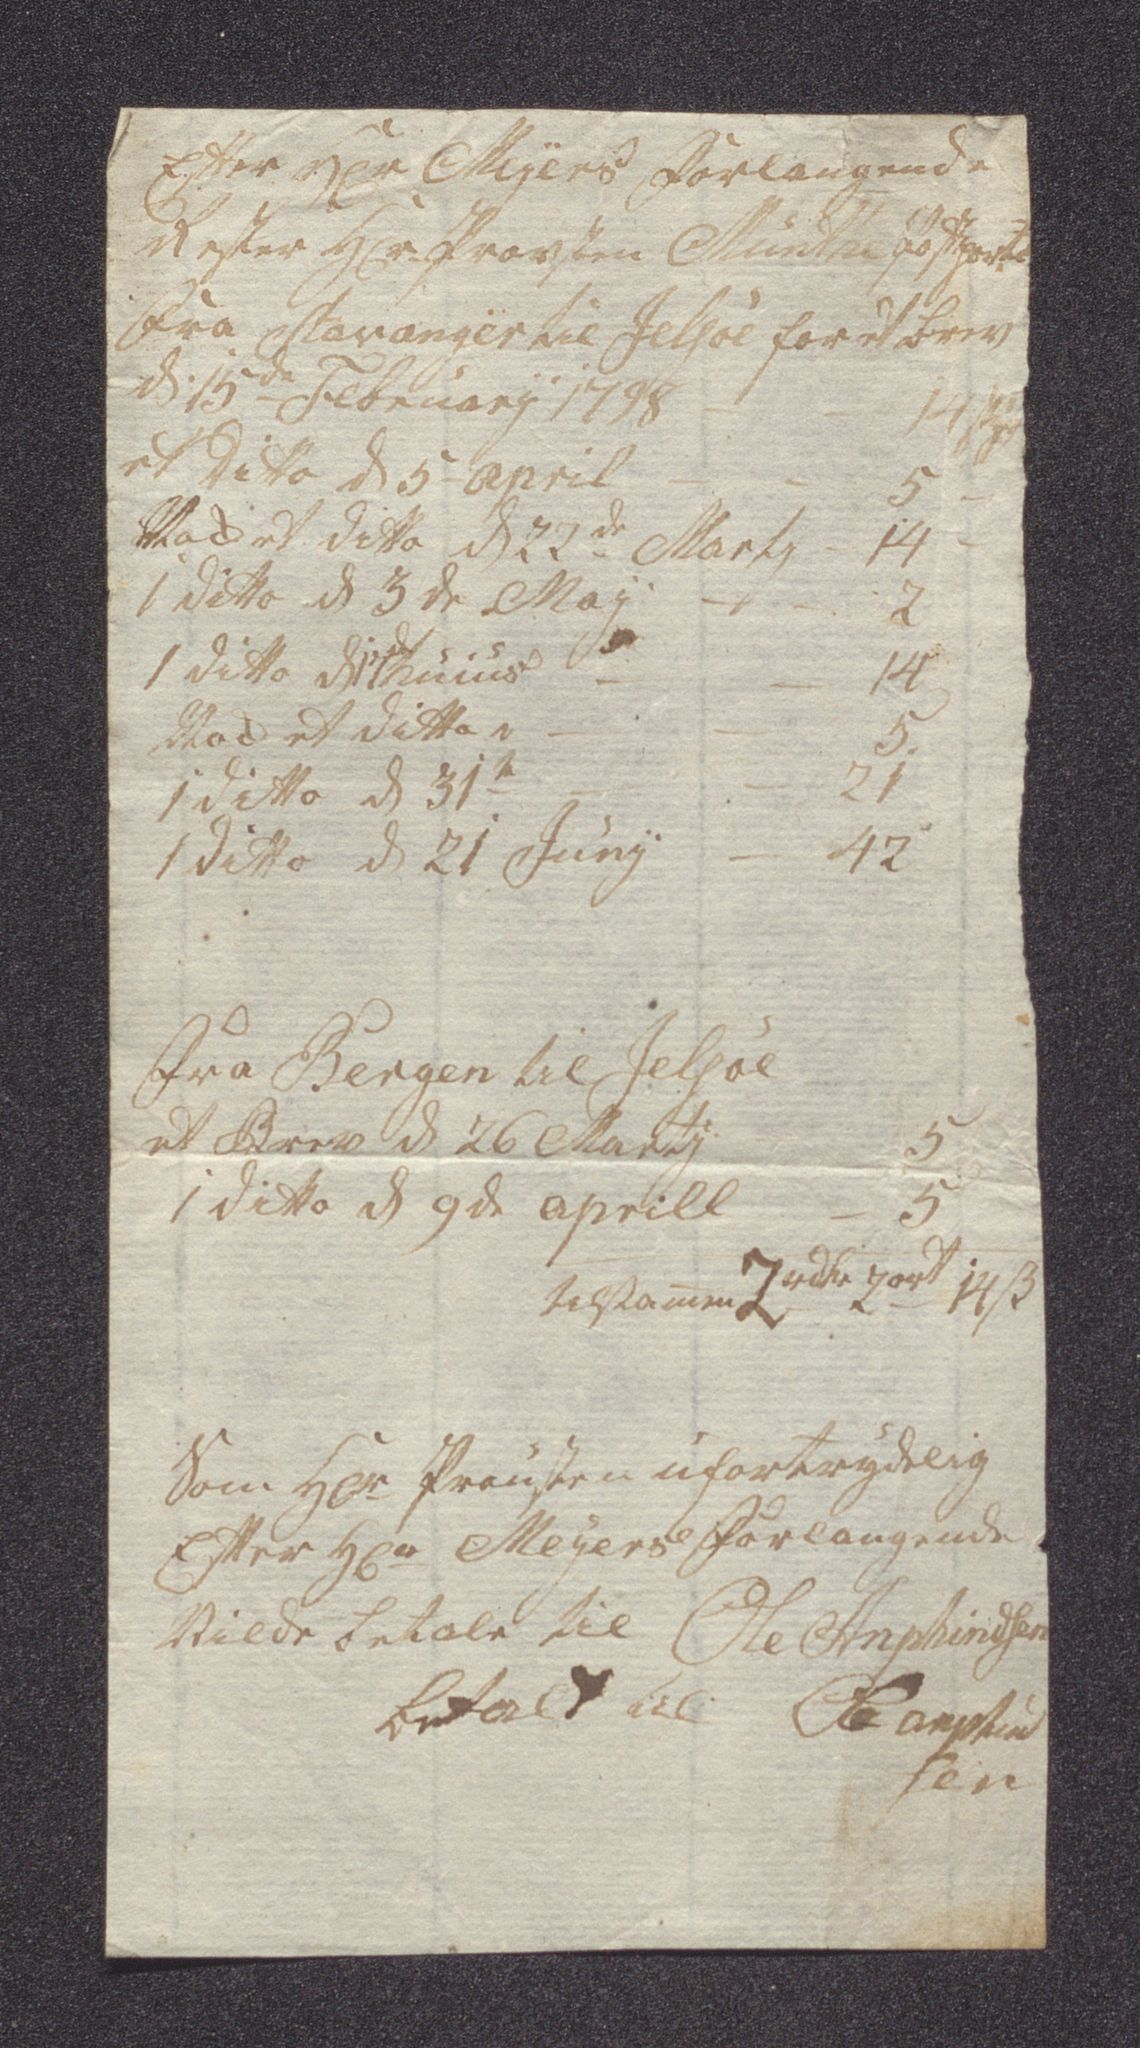 Efter Hr Meyers Forlangende
Rester Hr. Provsten Munthe Postporto
Fra Stavanger til Jelsøe for et brev
d. 15de February 1798 - - 14 sk
et Ditto d 5 april - - 5 -
Nock et ditto d 22de Marty - 14 -
1 ditto d 3de May - - 2
1 ditto d huius - - 14
Nock et ditto - - 5.
1 ditto d 31te - - 21
1 ditto d 21 Juny - 42
Fra Bergen til Jelsøe
et Brev d 26 Marty 5
1 ditto d 9de aprill - 5
tilsammen 2 rdlr 2 ort 14 ß
Som Hr Prousten ufortrydelig
Efter Hr Meyers Forlangende
Vilde betale til Ole Anphindsen
betalt til Ole anphind
sen